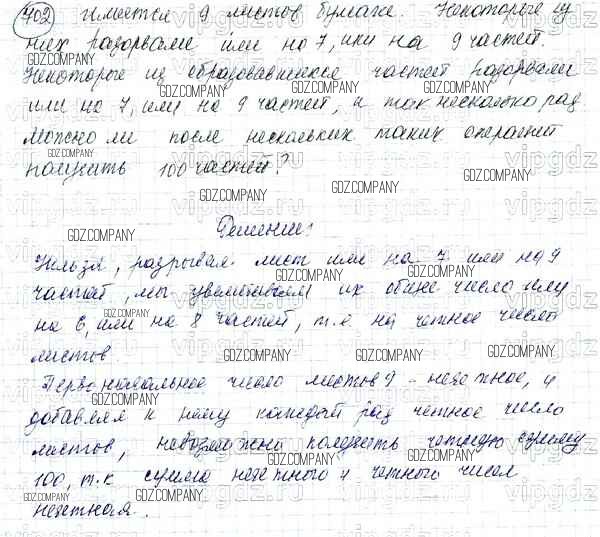 402 Имеется 9 листов бумаги. Некоторые из
них разорвали или на 7, или на 9 частей.
Некоторые из образовавшихся частей разорвали
или на 7, или на 9 частей, и так несколько раз.
Можно ли после нескольких таких операций
получить 100 частей?
Решение:
Нельзя, разрывая лист или на 7 или на 9
частей, мы увеличиваем их общее число или
на 6, или на 8 частей, т.е. на четное число
листов.
Первоначальное число листов 9 - нечетное, и
добавляя к нему каждый раз четное число
листов, невозможно получить четную сумму
100, т.к сумма нечетного и четного чисел
нечетная.